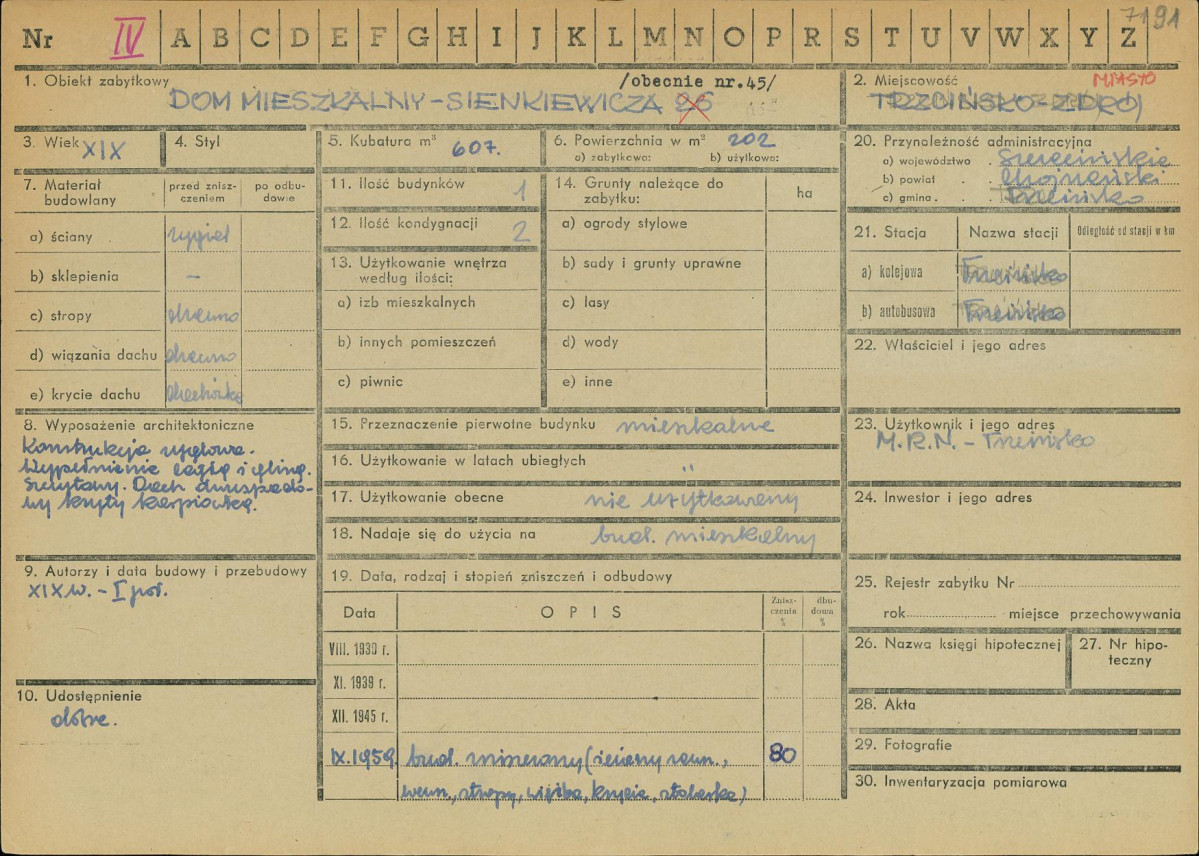 7191
Nr IV A B C D E F G H I J K L M N O P R S T U V W X Y Z
1. Obiekt zabytkowy /obecnie nr.45/
DOM MIESZKALNY-SIENKIEWICZA 26
2. Miejscowość MIASTO
TRZCIŃSKO-ZDRÓJ
3. Wiek XIX
4. Styl
5. Kubatura m³ 607.
6. Powierzchnia w m² 202
a) zabytkowa: b) użytkowa:
7. Materiał budowlany
przed znisz-
czeniem
po odbu-
dowie
a) ściany rygiel
b) sklepienia -
c) stropy drewno
d) wiązania dachu drewno
e) krycie dachu dachówka
8. Wyposażenie architektoniczne
Konstrukcja ryglowa.
Wypełnienie cegłą i gliną.
Szczytowy. Dach dwuspado-
wy kryty karpiówką.
9. Autorzy i data budowy i przebudowy
XIX w. - I poł.
10. Udostępnienie
dobre.
11. Ilość budynków 1
12. Ilość kondygnacji 2
13. Użytkowanie wnętrza
według ilości:
a) izb mieszkalnych
b) innych pomieszczeń
c) piwnic
14. Grunty należące do
zabytku:
ha
a) ogrody stylowe
b) sady i grunty uprawne
c) lasy
d) wody
e) inne
15. Przeznaczenie pierwotne budynku mieszkalne
16. Użytkowanie w latach ubiegłych "
17. Użytkowanie obecne nie użytkowany
18. Nadaje się do użycia na bud. mieszkalny
19. Data, rodzaj i stopień zniszczeń i odbudowy
Data OPIS
Znisz-
czenia
%
dbu-
dowa
%
VIII. 1939 r.
XI. 1939 r.
XII. 1945 r.
IX.1959. bud. niszczony (ściany zewn., 80
wewn., stropy, więźba, krycie, stolarka)
20. Przynależność administracyjna
a) województwo Szczecińskie
b) powiat Chojneński
c) gmina Trzcińsko
21. Stacja Nazwa stacji Odległość od stacji w km
a) kolejowa Trzcińsko
b) autobusowa Trzcińsko
22. Właściciel i jego adres
23. Użytkownik i jego adres
M.R.N. - Trzcińsko
24. Inwestor i jego adres
25. Rejestr zabytku Nr
rok miejsce przechowywania
26. Nazwa księgi hipotecznej
27. Nr hipo-
teczny
28. Akta
29. Fotografie
30. Inwentaryzacja pomiarowa